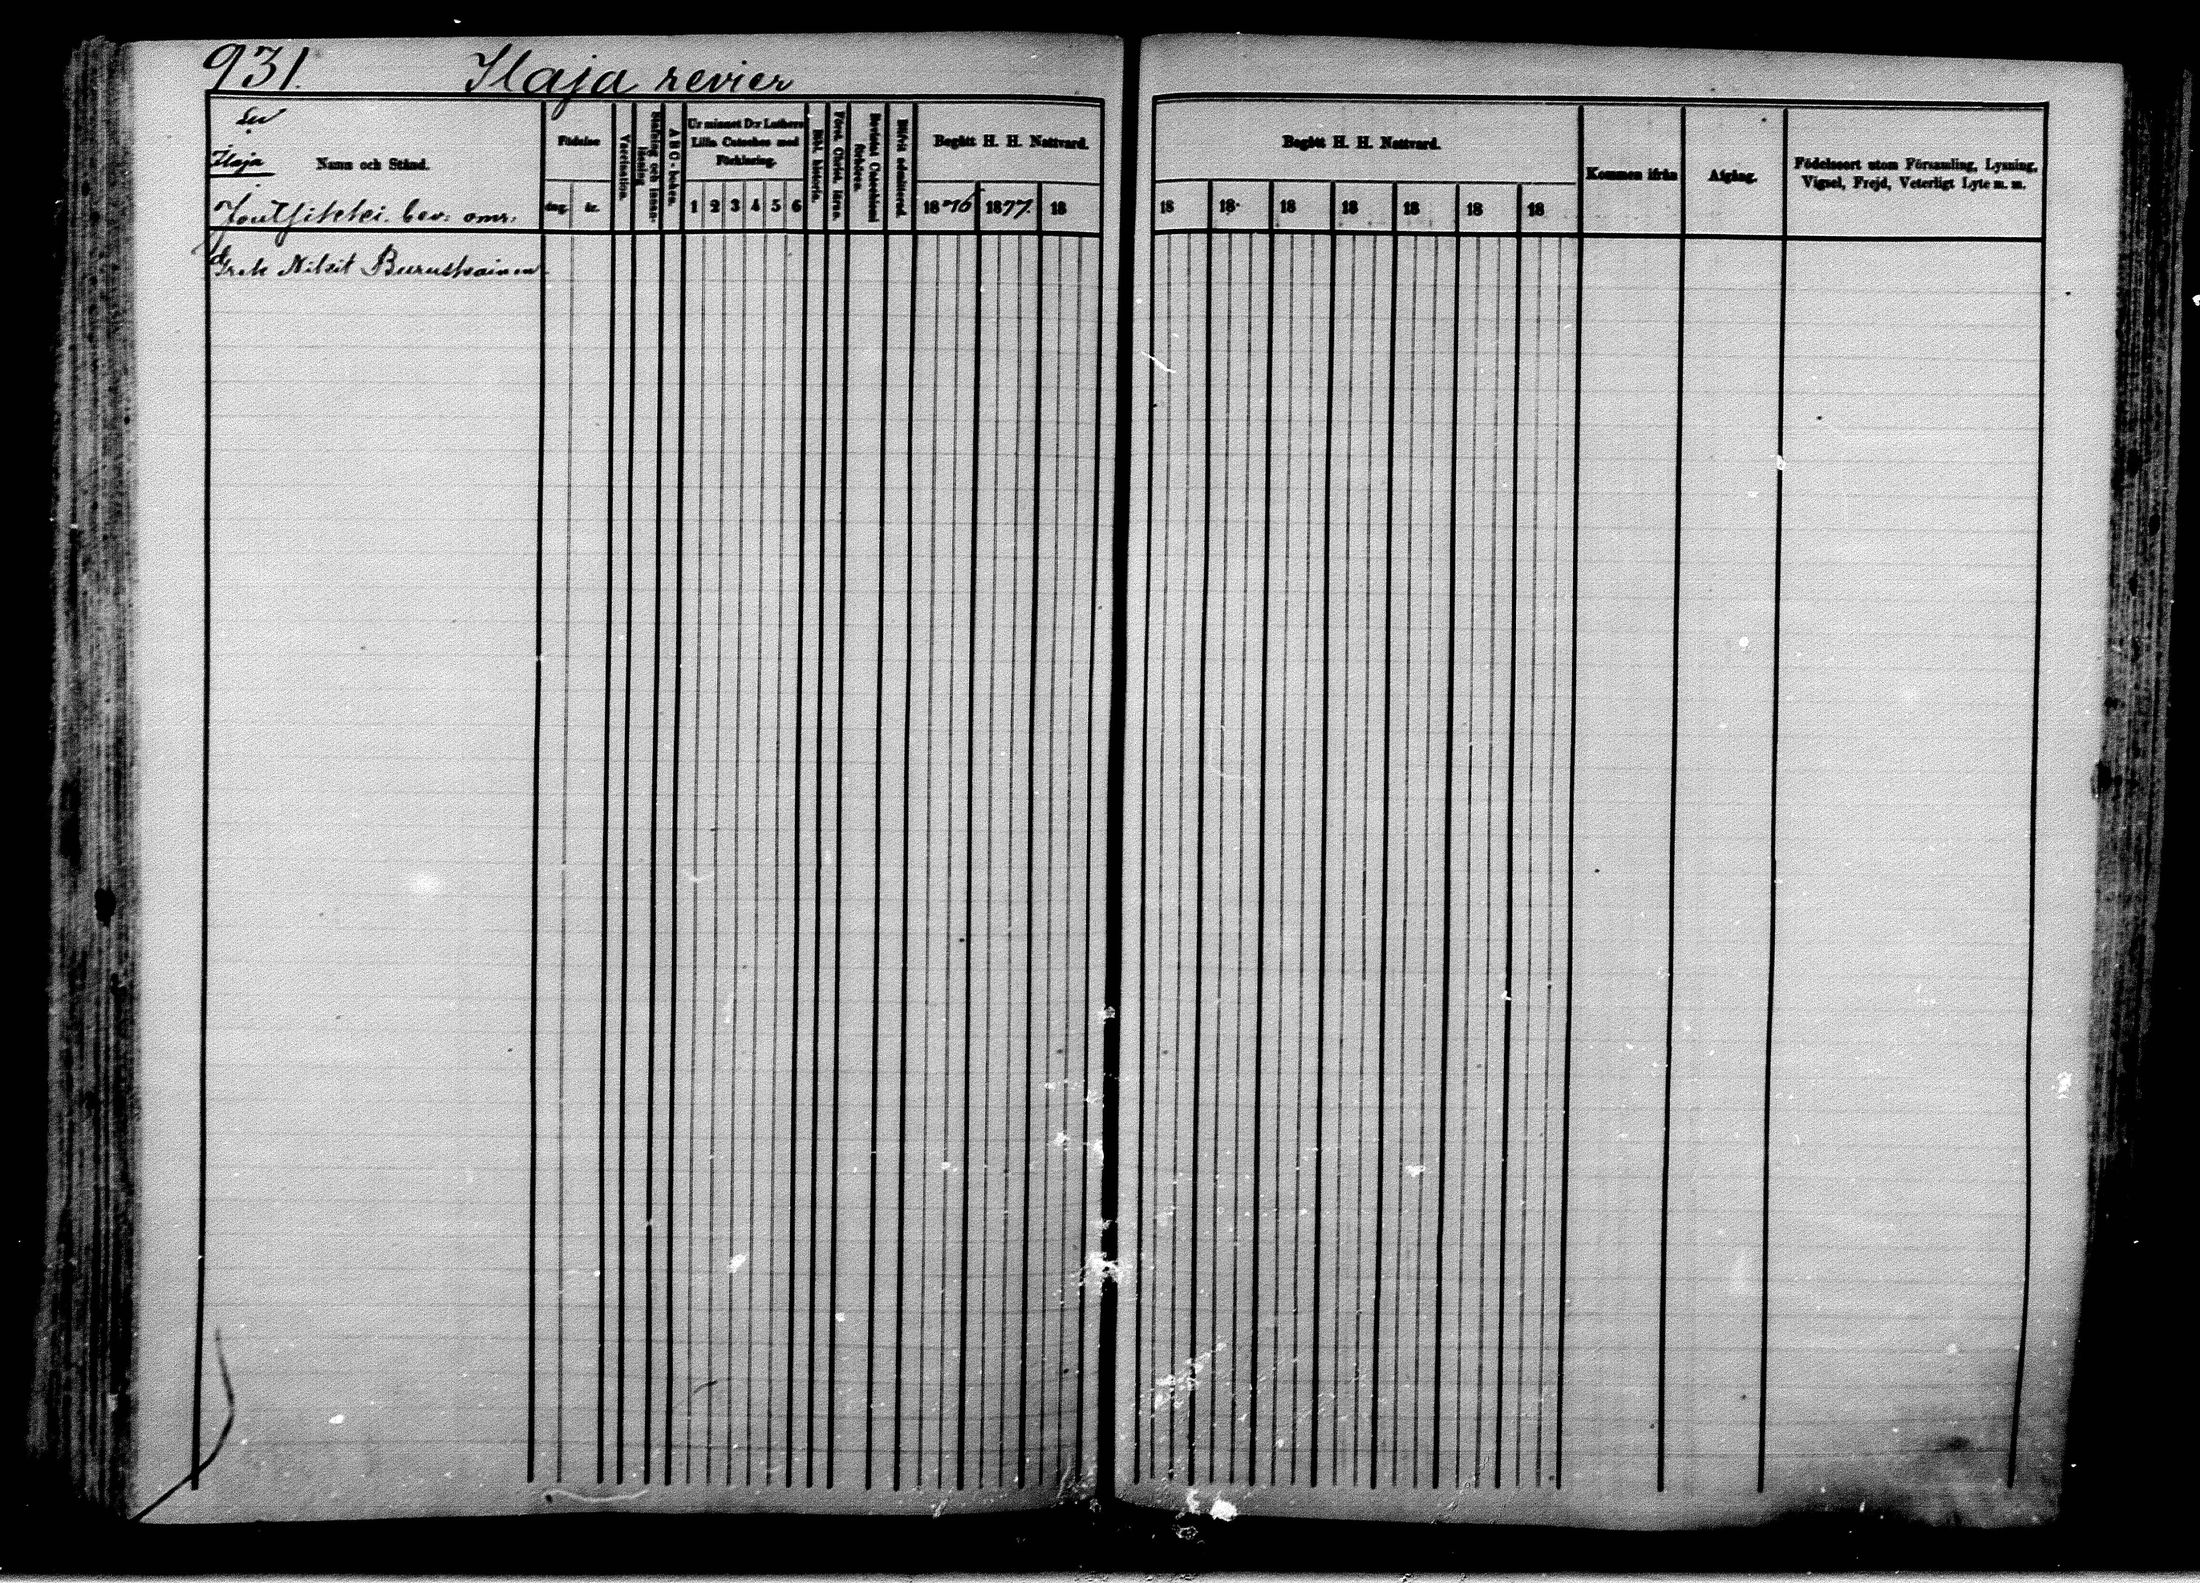 931. Ilaja revier
Ilaja
Namn och Stånd.
Födelse
dag. år.
Vaccination.
Stafning och innan-
läsning
ABC-boken.
Ur minnet D:r Luthers
Lilla Cateches med
Förklaring.
1 2 3 4 5 6
Bibl. historia.
Först. Christ. läran.
Bevistat Catechismi
förhören.
Blifvit admitterad.
Begått H. H. Nattvard.
1876 1877. 18
bev: omr:
Grek Nikit Buruskainen
Begått H. H. Nattvard.
18 18 18 18 18 18 18
Kommen ifrån
Afgång.
Födelseort utom Församling, Lysning,
Vigsel, Frejd, Veterligt Lyte m. m.